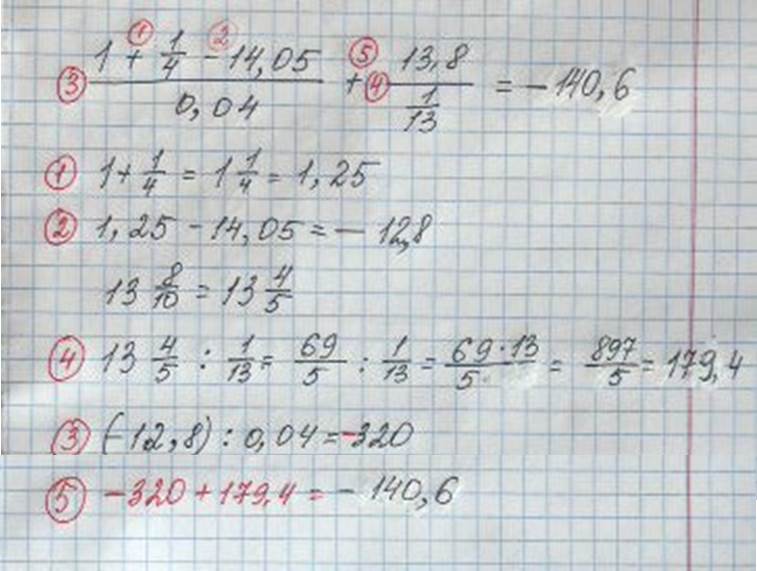 ③ (1 +① 1/4 -② 14,05)/0,04 +⑤ ④ 13,8/(1/13) = - 140,6
① 1 + 1/4 = 1 1/4 = 1,25
② 1,25 - 14,05 = - 12,8
13 8/10 = 13 4/5
④ 13 4/5 : 1/13 = 69/5 : 1/13 = 69·13/5· = 897/5 = 179,4
③ (-12,8) : 0,04 = -320
⑤ -320 + 179,4 = - 140,6